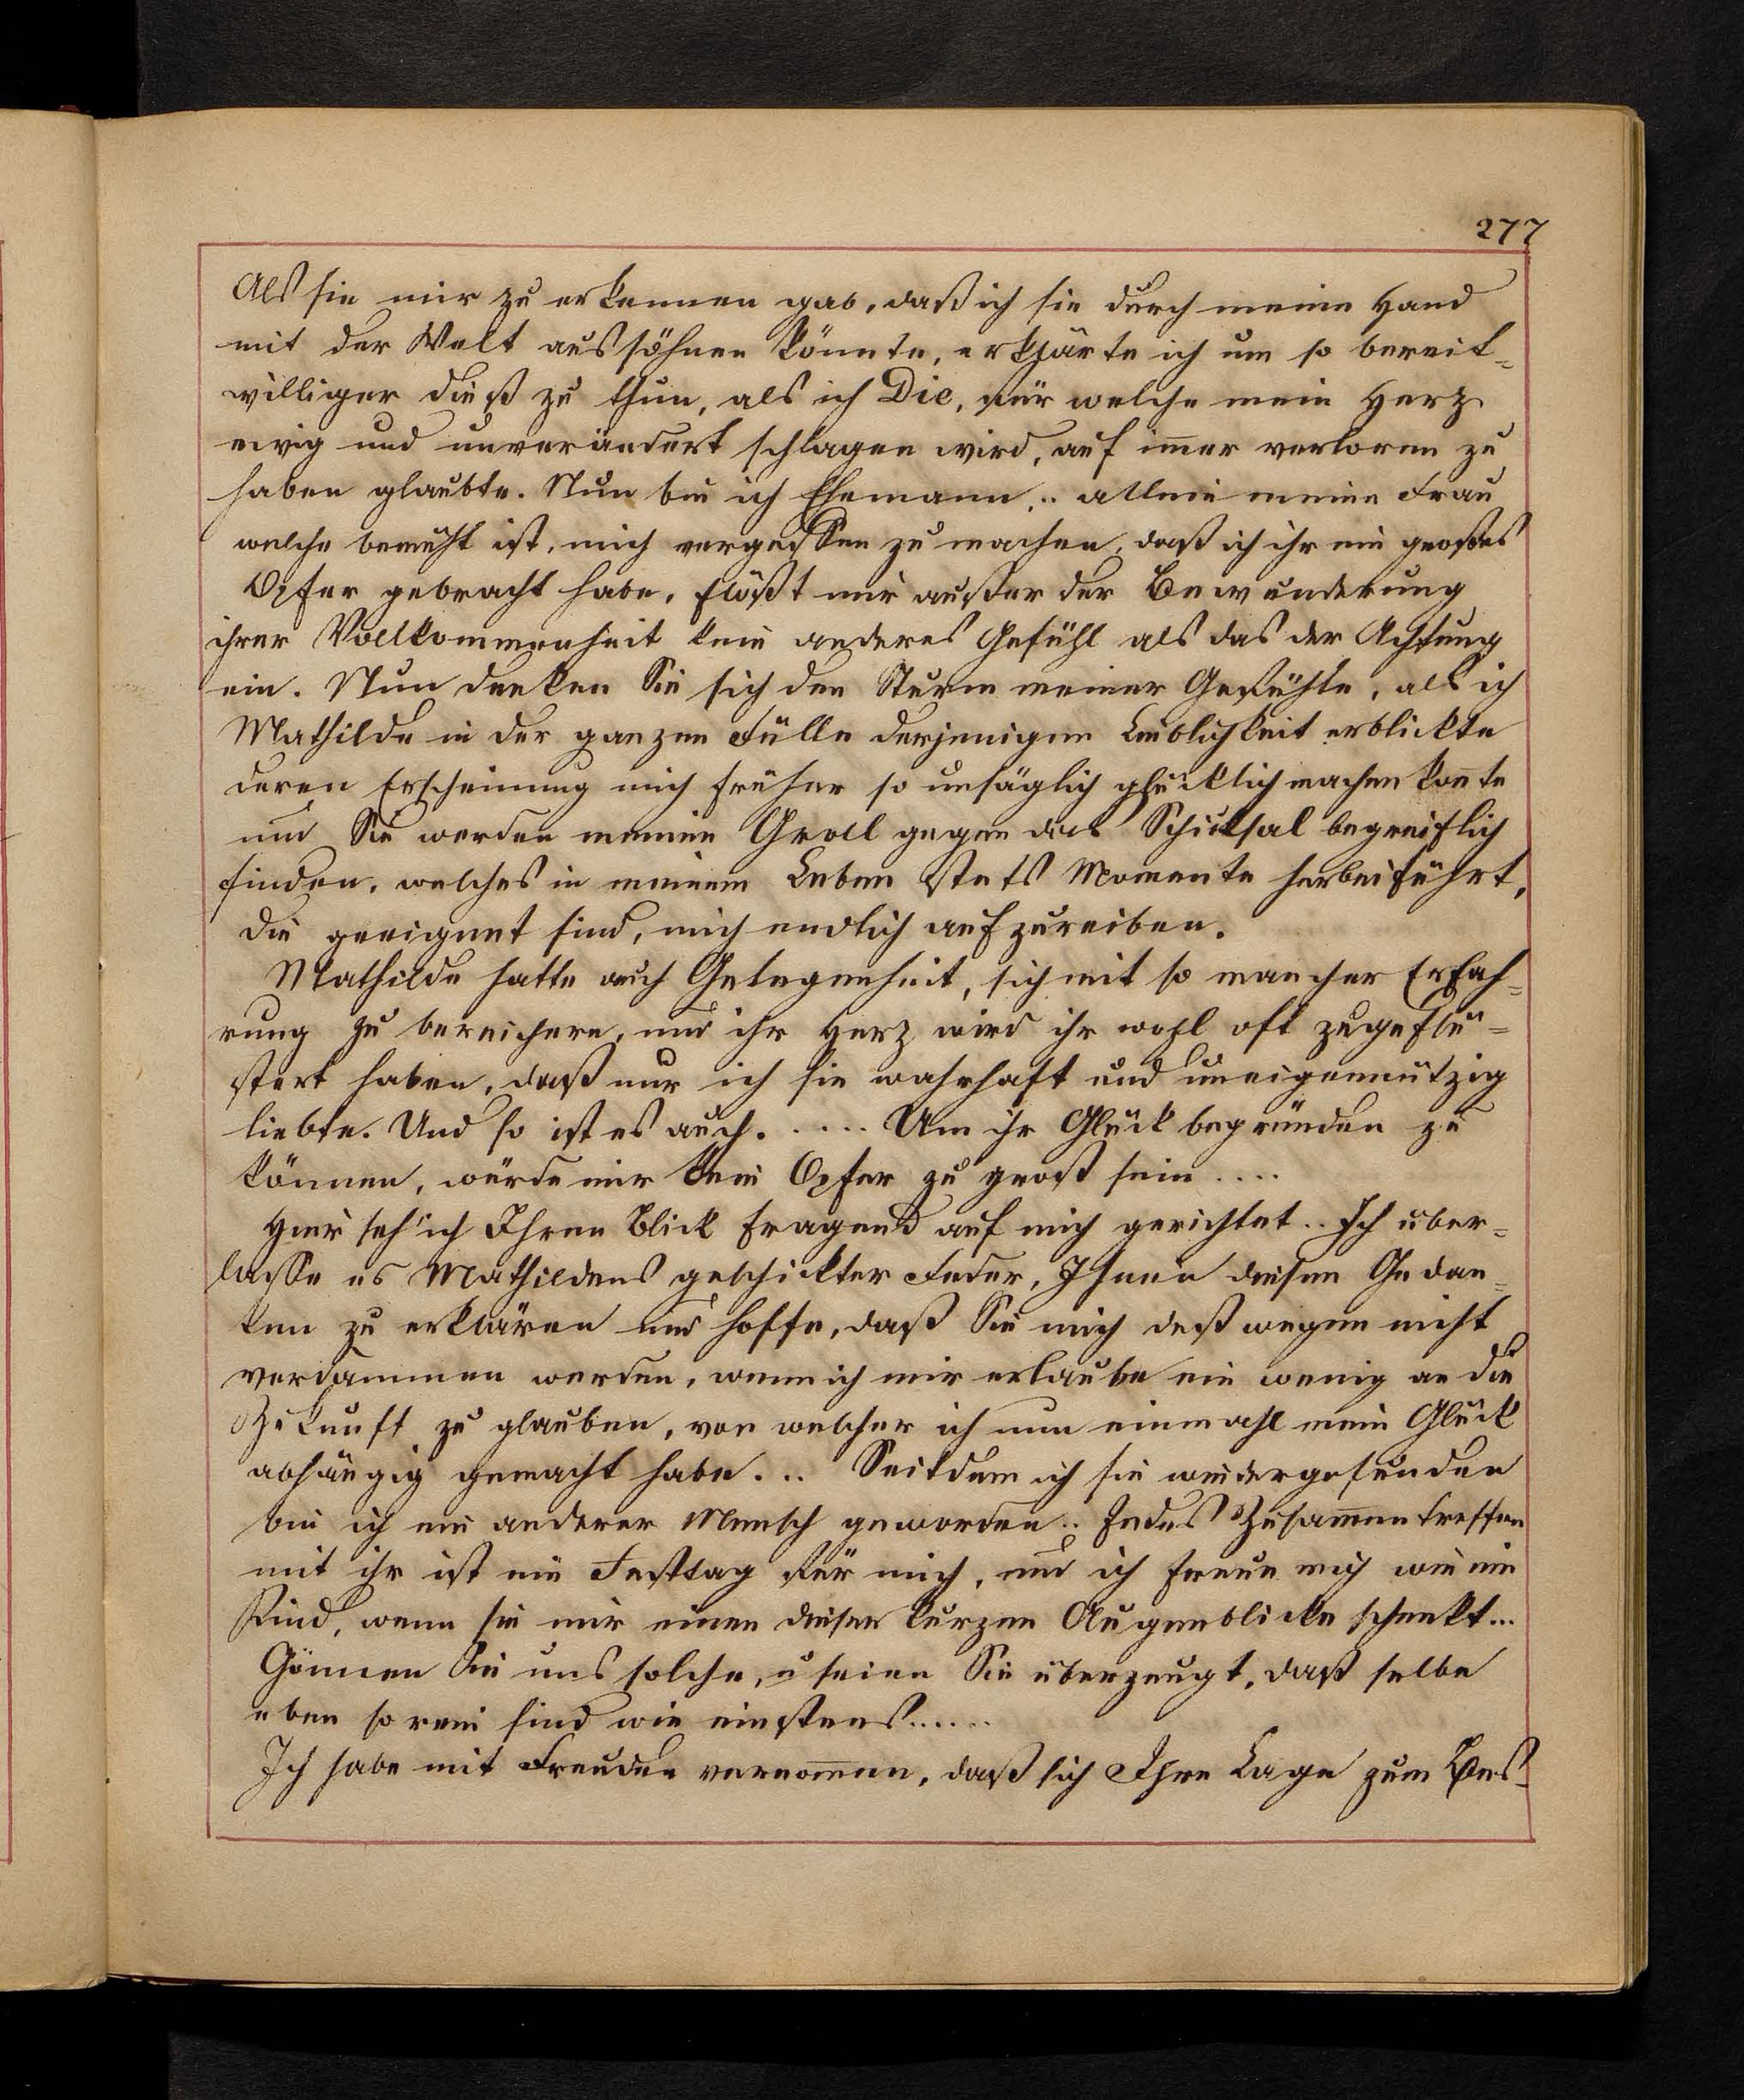 277
Als sie mir zu erkennen gab, daß ich sie durch meine Hand
mit der Welt aussöhnen könnte, erklärte ich um so bereit=
williger dieß zu thun, als ich Die, für welche mein Herz
ewig und unverändert schlagen wird, auf im̅er verloren zu
haben glaubte. Nun bin ich Ehemann .. allein meine Frau
welche bemüht ist, mich vergessen zu machen, daß ich ihr ein großes
Opfer gebracht habe, flößt mir außer der Bewunderung
ihrer Vollkommenheit kein anderes Gefühl als das der Achtung
ein. Nun denken Sie sich den Sturm meiner Gefühle, als ich
Mathilde in der ganzen Fülle derjenigen Lieblichkeit erblickte
deren Erscheinung mich früher so unsäglich glücklich machen kon̅te
und Sie werden meinen Groll gegen das Schicksal begreiflich
finden, welches in meinem Leben stets Momente herbeiführt,
die geeignet sind, mich endlich aufzureiben.
Mathilde hatte auch Gelegenheit, sich mit so mancher Erfah=
rung zu bereichern, und ihr Herz wird ihr wohl oft zugeflü=
stert haben, daß nur ich sie wahrhaft und uneigennützig
liebte. Und so ist es auch. .... Um ihr Glück begründen zu
können, würde mir kein Opfer zu groß sein ....
Hier seh' ich Ihren Blick fragend auf mich gerichtet .. Ich über=
lasse es Mathildens geschickter Feder, Ihnen diesen Gedan=
ken zu erklären und hoffe, daß Sie mich deßwegen nicht
verdammen werden, wenn ich mir erlaube ein wenig an die
Zukunft zu glauben, von welcher ich nun einmahl mein Glück
abhängig gemacht habe ... Seitdem ich sie wiedergefunden
bin ich ein anderer Mensch geworden .. Jedes Zusam̅entreffen
mit ihr ist ein Festtag für mich, und ich freue mich wie ein
Kind, wenn sie mir einen dieser kurzen Augenblicke schenkt ...
Gönnen Sie uns solche, u seien Sie überzeugt, daß selbe
eben so rein sind wie einstens......
Ich habe mit Freuden vernom̅en, daß sich Ihre Lage zum Bes=